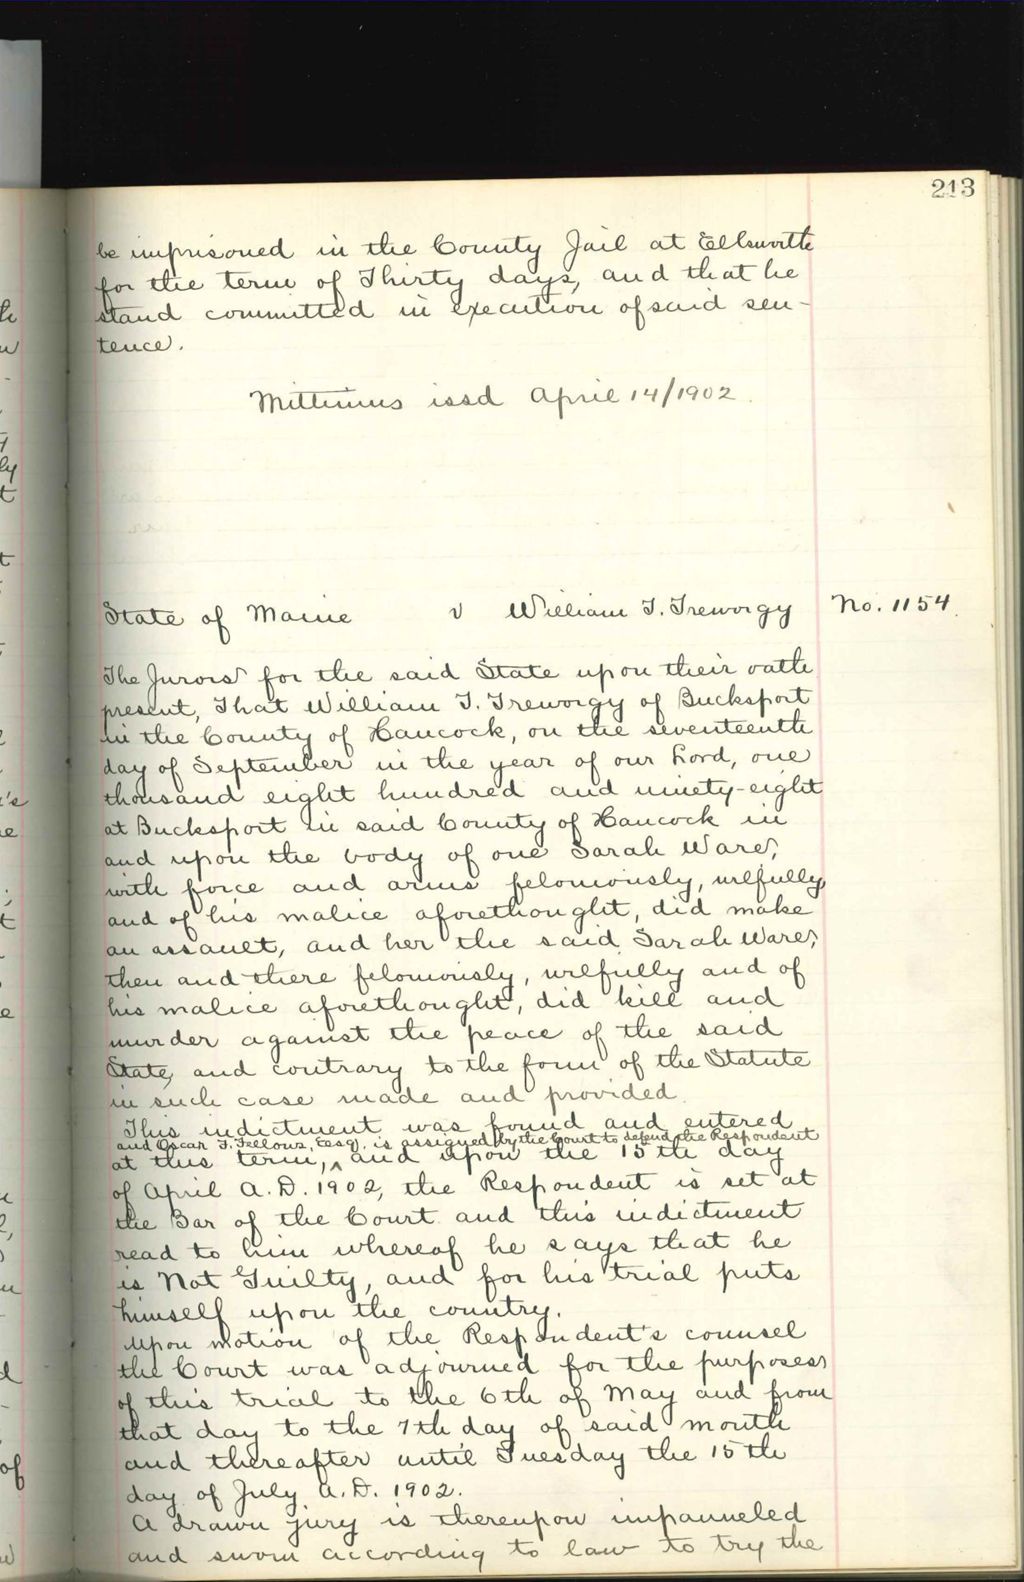 213
be imprisoned in the County Jail at Ellsworth
for the term of Thirty days, and that he
stand committed in execution of said sen-
tence.
Mittimus issd April 14/1902.
State of Maine v William T. Treworgy No. 1154.
The Jurors for the said State upon their oath
present, That William T. Treworgy of Bucksport
in the County of Hancock, on the seventeenth
day of September in the year of our Lord, one
thousand eight hundred and ninety-eight
at Bucksport in said County of Hancock in
and upon the body of one Sarah Ware,
with force and arms feloniously, wilfully,
and of his malice aforethought, did make
an assault, and her the said Sarah Ware,
then and there feloniously, wilfully and of
his malice aforethought, did kill and
murder against the peace of the said
State, and contrary to the form of the Statute
in such case made and provided.
This indictment was found and entered
and Oscar F. Fellows, Esq. is assigned by the Court to defend the Respondent
at this term, ^ and upon the 15th day
of April A.D. 1902, the Respondent is set at
the Bar of the Court and this indictment
read to him whereof he says that he
is Not Guilty, and for his trial puts
himself upon the country.
Upon motion of the Respondent's counsel
the Court was adjourned for the purposes
of this trial to the 6th of May and from
that day to the 7th day of said month
and thereafter until Tuesday the 15th
day of July A.D. 1902.
A drawn jury is thereupon impanneled
and sworn according to law to try the